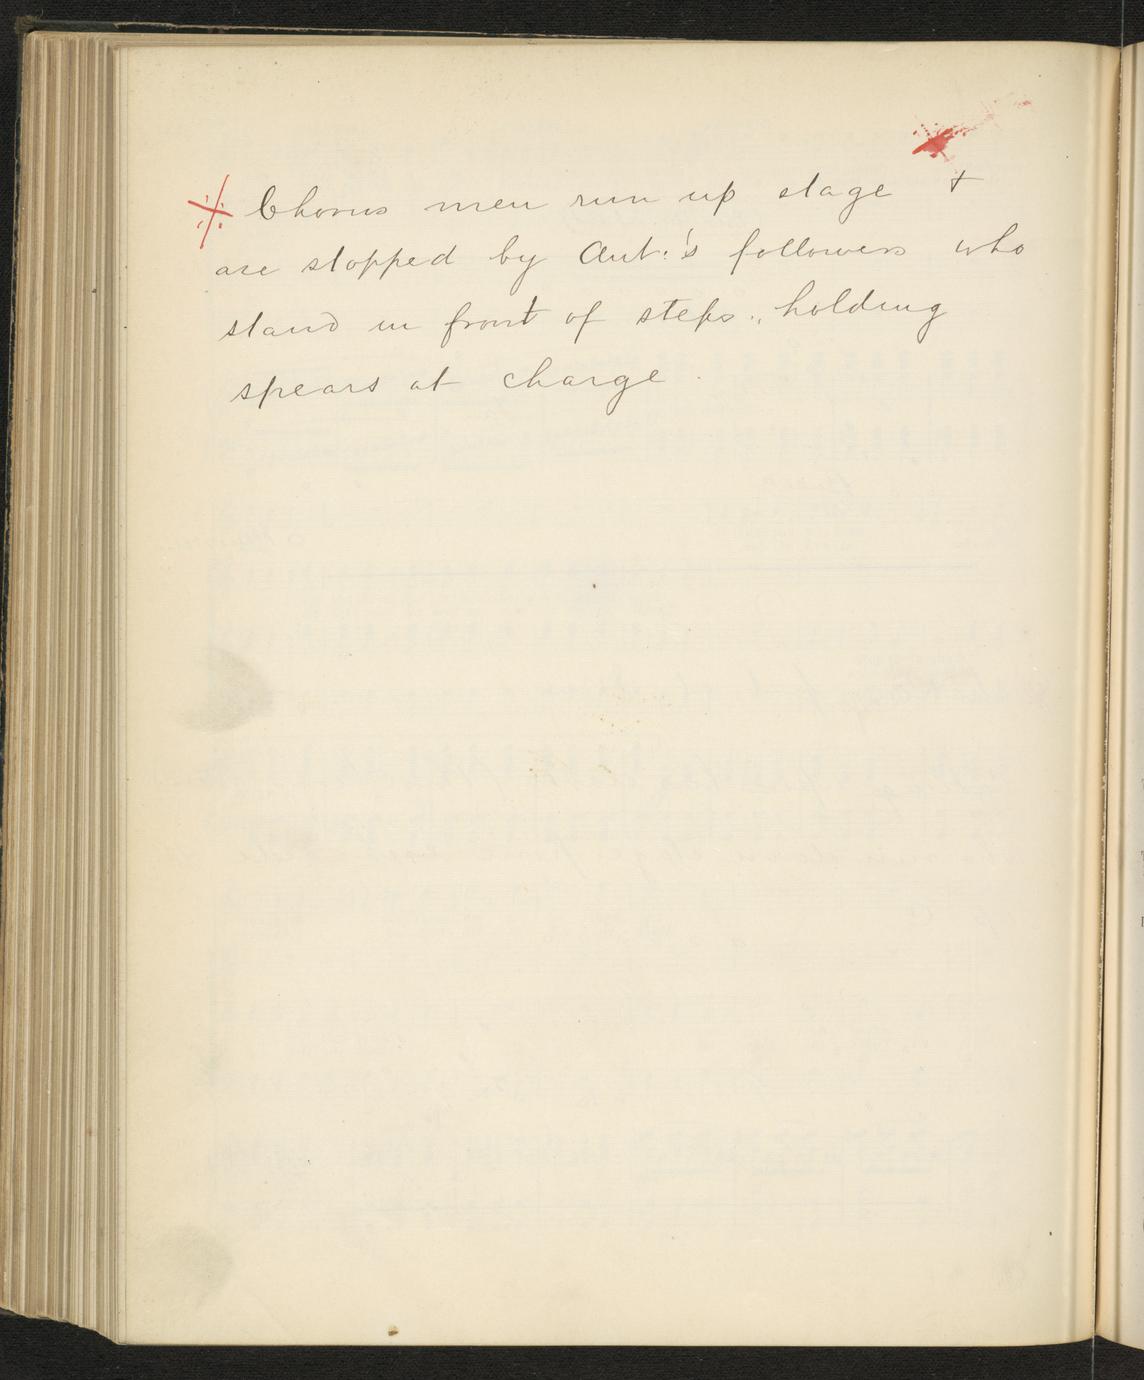 ※ Chorus men run up stage +
are stopped by Ant:'s followers who
stand in front of steps., holding
spears at charge.